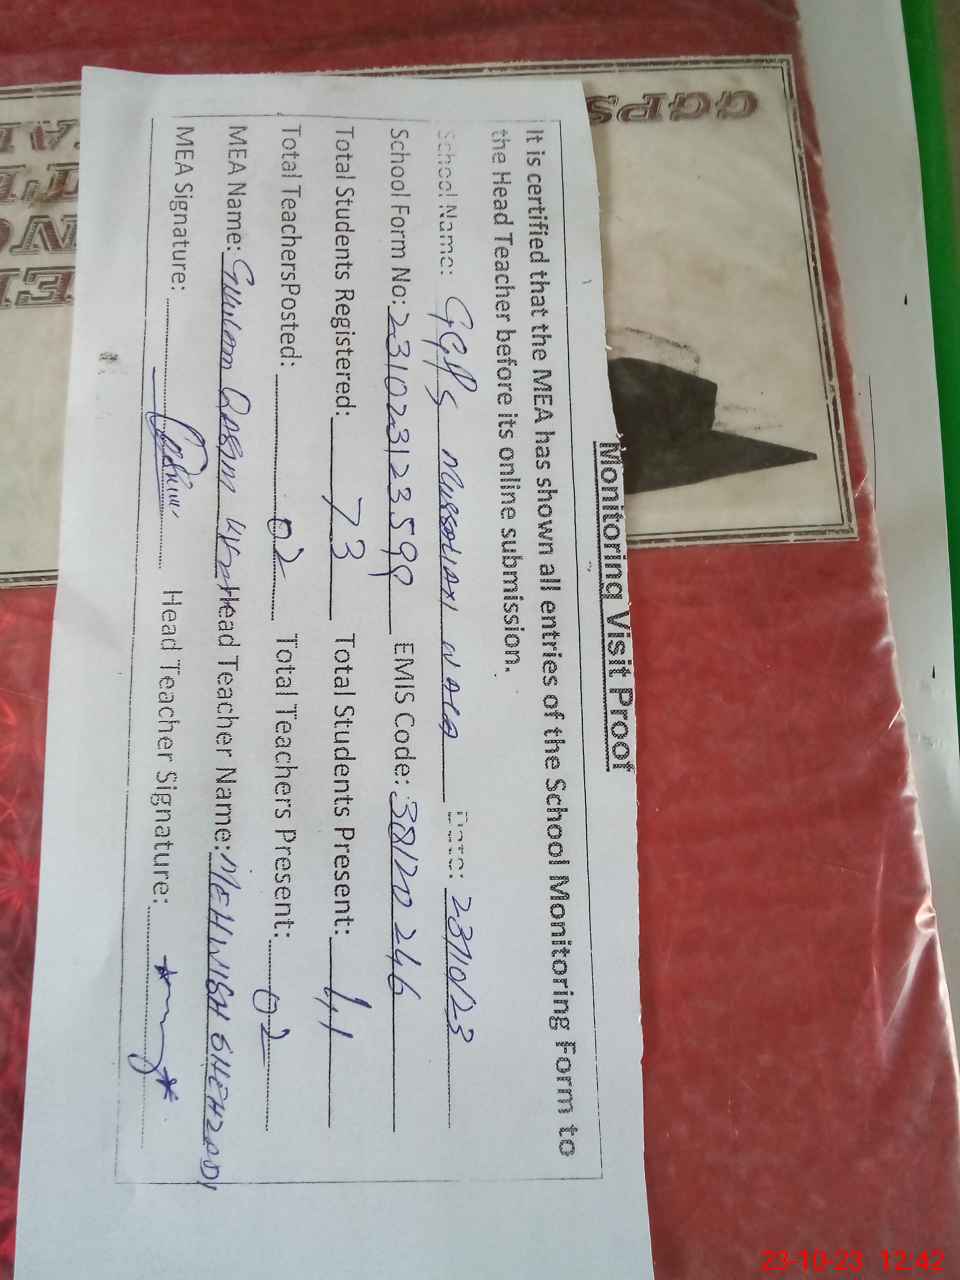 Monitoring Visit Proof
It is certified that the MEA has shown all entries of the School Monitoring Form to
the Head Teacher before its online submission.
School Name: GGPS WALA Date: 23/10/23
School Form No: 23102312359 EMIS Code: 38120246
Total Students Registered: 73 Total Students Present:
Total TeachersPosted: 02 Total Teachers Present: 02
MEA Name: Ghulam Qasim Head Teacher Name: MEHWISH SHEHZADI
MEA Signature: Head Teacher Signature:
GGPS
23-10-23 12:42